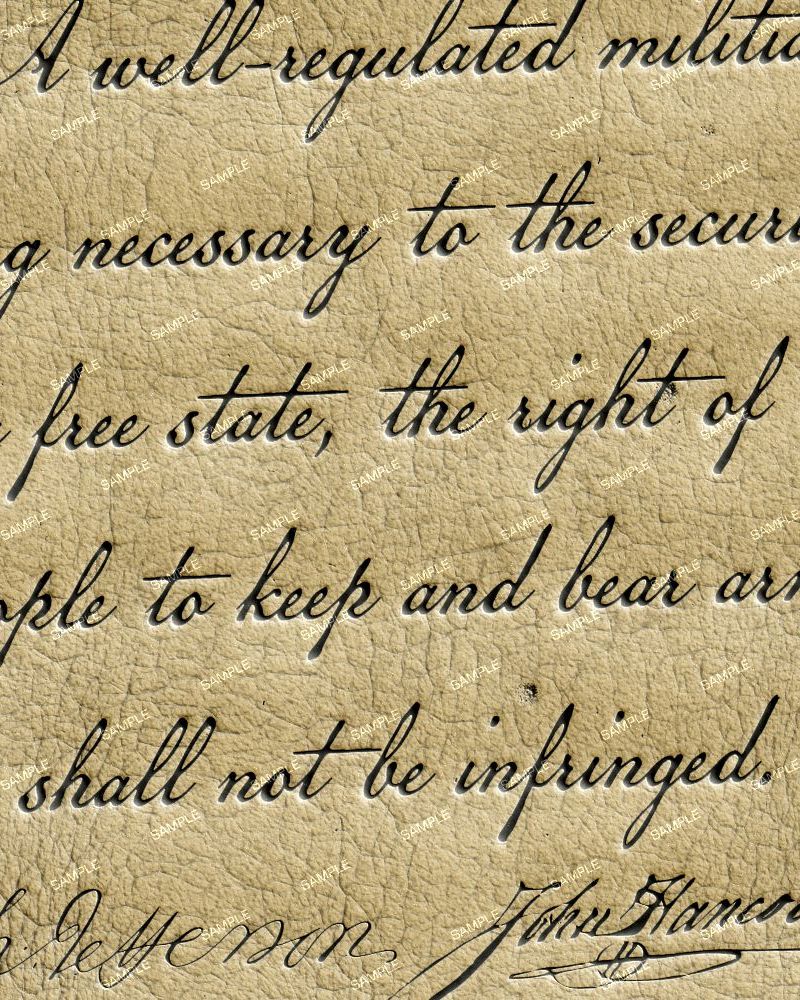 A well-regulated militia
g necessary to the securi
free state, the right of
ople to keep and bear arm
shall not be infringed.
h. Jefferson John Hancoc
SAMPLE